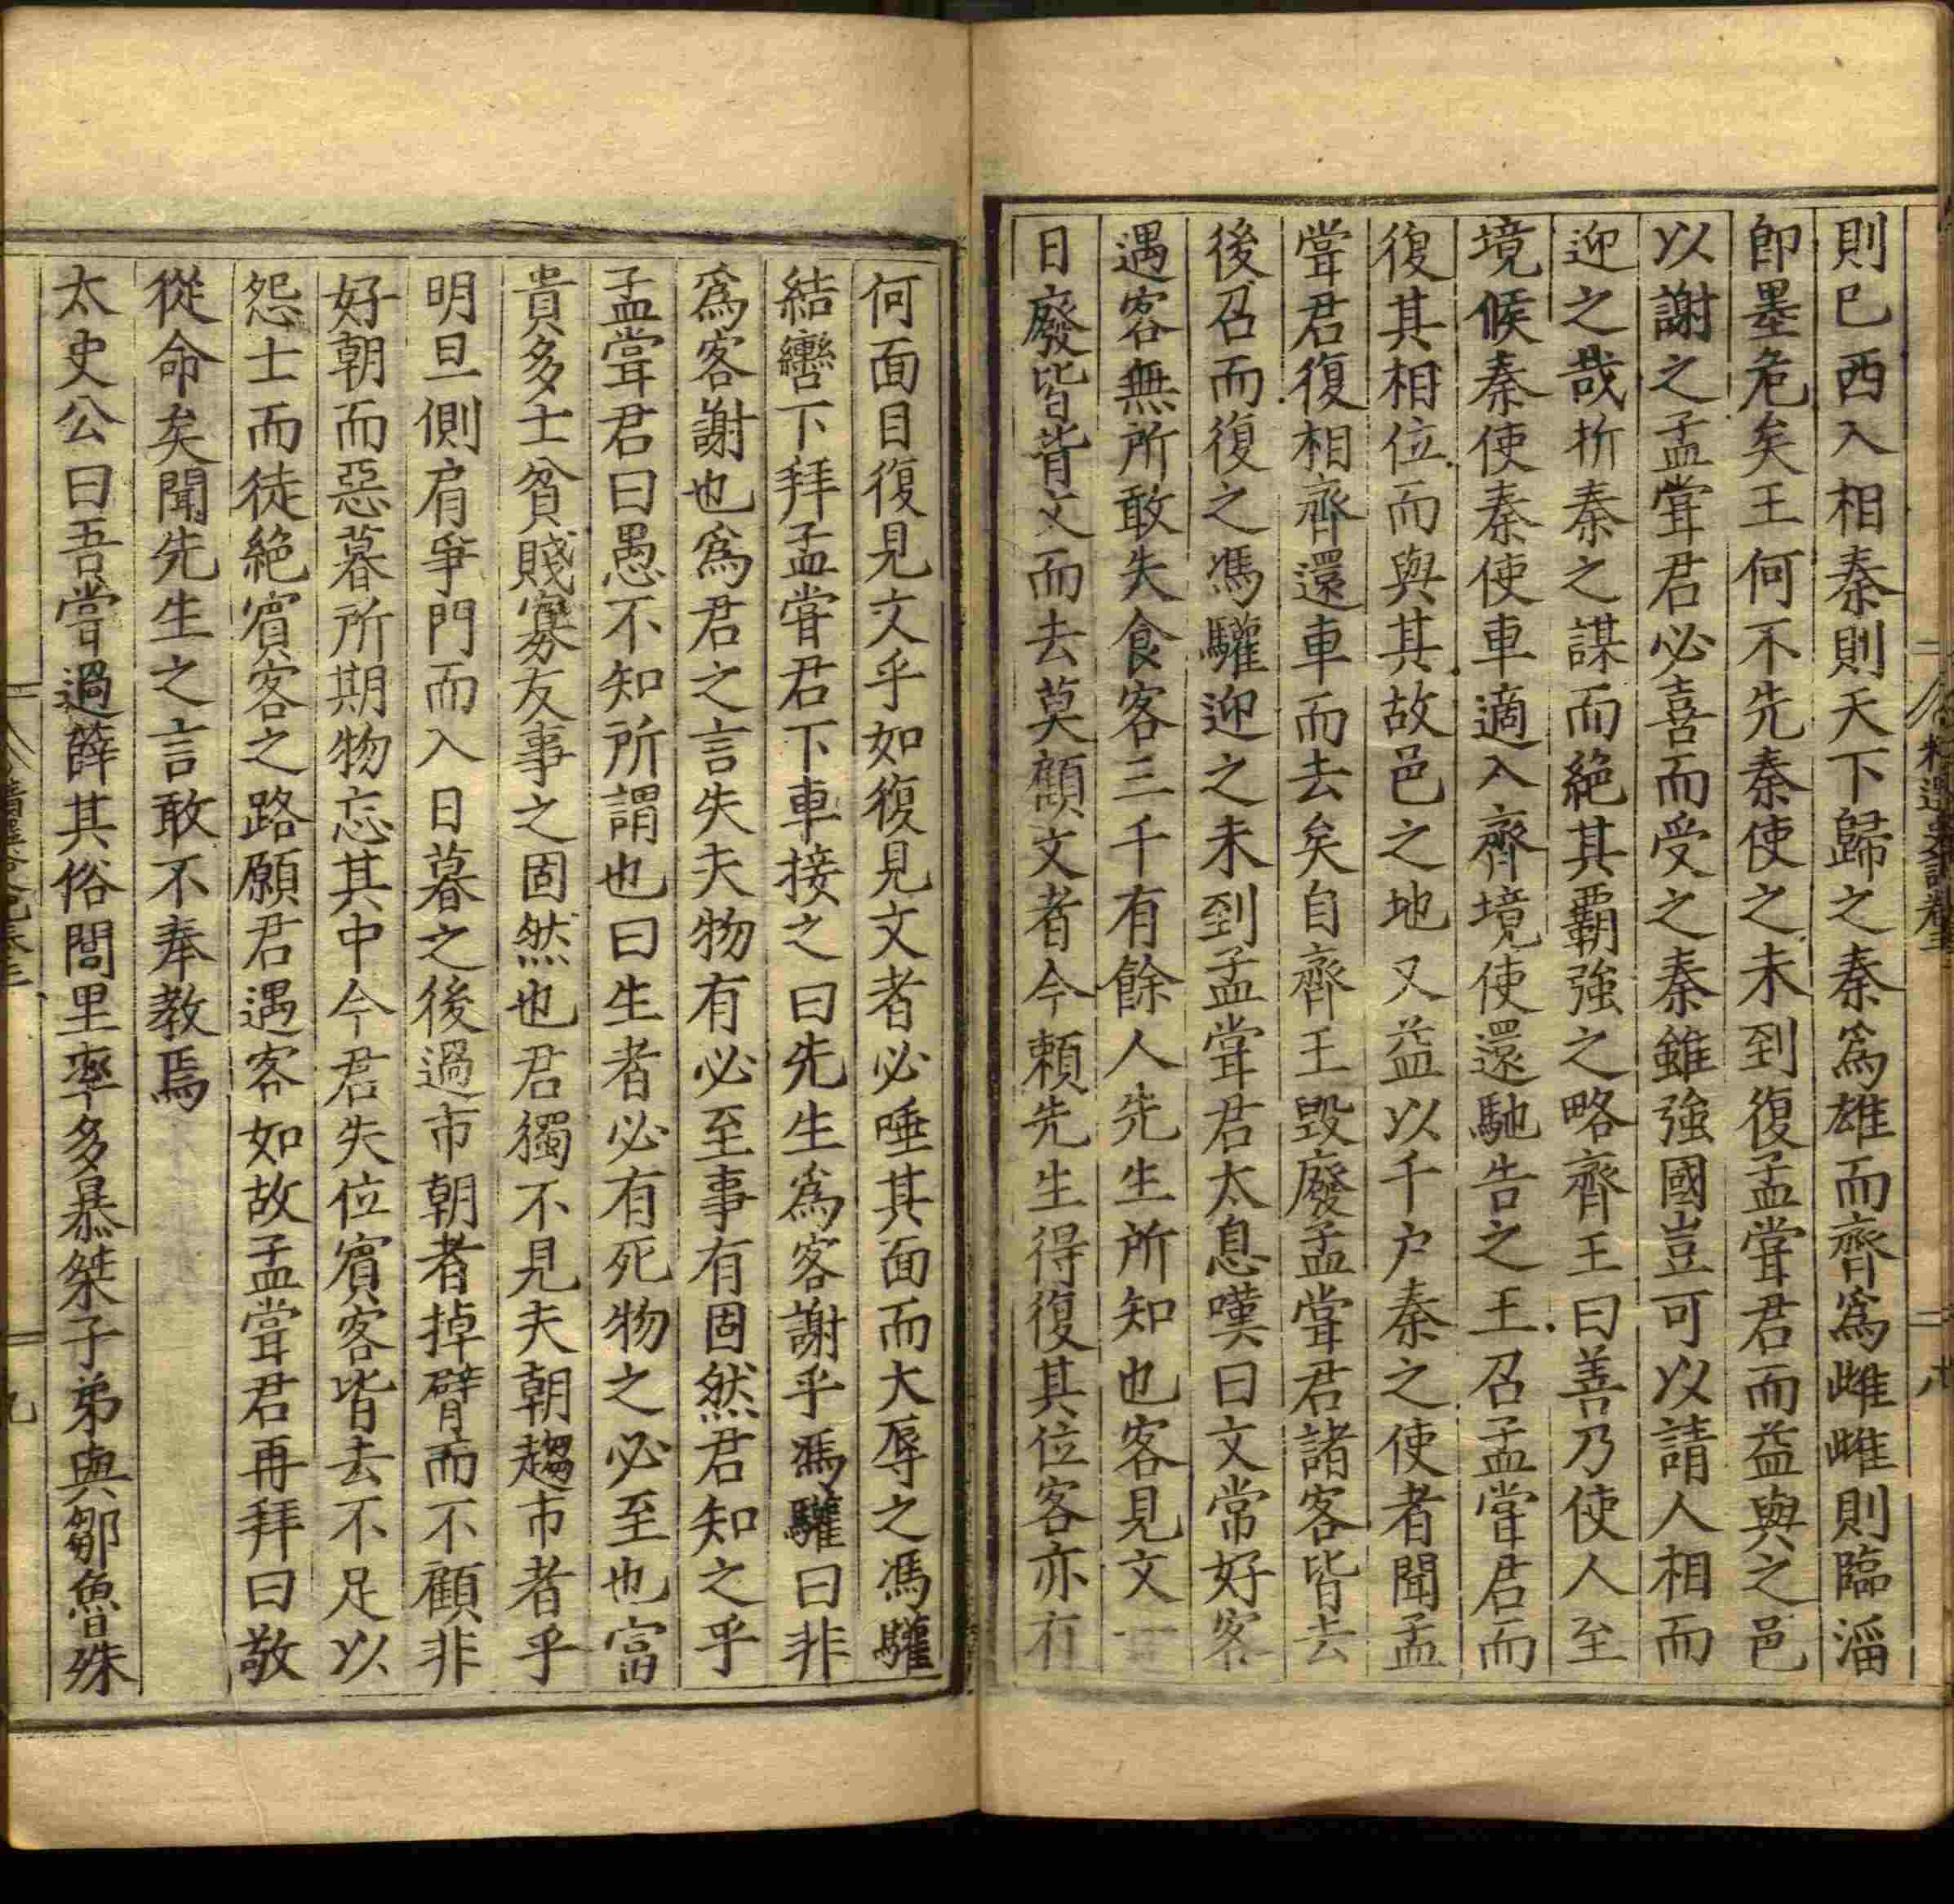 則已西入相秦則天下歸之秦爲雄而齊爲雌雌則臨淄
卽墨危矣王何不先秦使之未到復孟甞君而益與之邑
以謝之孟甞君必喜而受之秦雖強國豈可以請人相而
迎之哉折秦之謀而絕其覇強之略齊王曰善乃使人至
境候秦使秦使車適入齊境使還馳告之王召孟甞君而
復其相位而與其故邑之地又益以千户秦之使者聞孟
甞君復相齊還車而去矣自齊王毀廢孟甞君諸客皆去
後召而復之馮驩迎之未到孟甞君太息嘆曰文常好客
遇客無所敢失食客三千有餘人先生所知也客見文一
日廢皆背文而去莫顧文者今賴先生得復其位客亦有
何面目復見文乎如復見文者必唾其面而大辱之馮驩
結轡下拜孟甞君下車接之曰先生爲客謝乎馮驩曰非
爲客謝也爲君之言失夫物有必至事有固然君知之乎
孟甞君曰愚不知所謂也曰生者必有死物之必至也富
貴多士貧賤寡友事之固然也君獨不見夫朝趨市者乎
明旦側肩爭門而入日暮之後過市朝者掉臂而不顧非
好朝而惡暮所期物忘其中今君失位賓客皆去不足以
怨士而徒絕賓客之路願君遇客如故孟甞君再拜曰敬
從命矣聞先生之言敢不奉教焉
太史公曰吾嘗過薛其俗閭里率多暴桀子弟與鄒魯殊